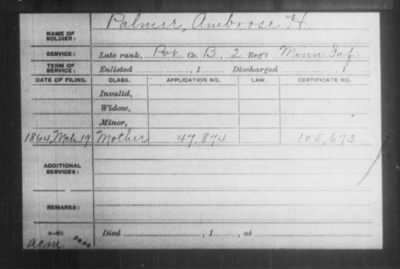 NAME OF SOLDIER: Palmer, Ambrose H.
SERVICE: Late rank, Pvt Co. B, 2 Reg't Minn Inf.
TERM OF SERVICE: Enlisted , 1 Discharged , 1
DATE OF FILING. CLASS. APPLICATION NO. LAW. CERTIFICATE NO.
Invalid,
Widow,
Minor,
1864, Mch. 19 Mother 47,874 105,673
ADDITIONAL SERVICES:
REMARKS:
Died , 1 , at